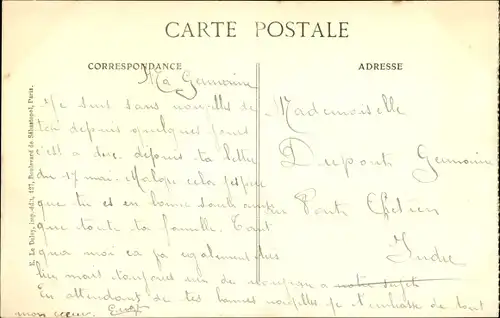 CARTE POSTALE
CORRESPONDANCE
ADRESSE
E. Le Deley, imp.-édit., 127, Boulevard de Sébastopol, Paris.
Ma Germaine
Je suis sans nouvelles de
toi depuis quelques jours
c'est a dire depuis ta lettre
du 17 mai. Malgre cela j'espere
que tu es en bonne santé ainsi
que toute ta famille. Tout
qua moi ca va egalement tres
bien mais toujours rien de
En attendant de tes bonnes nouvelles je t'embrasse de tout
mon cœur.
Mademoiselle
Dupont Germaine
Pont Chétien
Indre